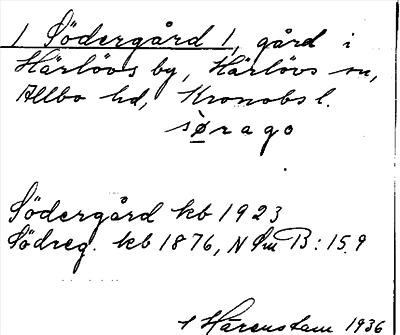 / Södergård /, gård i
Härlövs by, Härlövs sn,
Allbo hd, Kronobs l.
sø̀rago
Södergård kb 1923
Södreg. kb 1876, N Sm B: 15.9
Hårenstam 1936